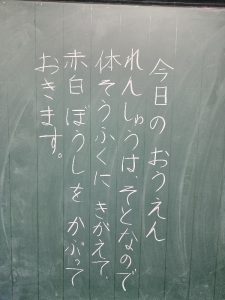 今日の おうえん
れんしゅうは、そとなので
体そうふくに きがえて、
赤白ぼうしを かぶって
おきます。